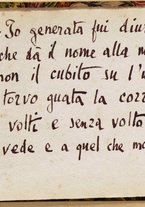 Io generata fui diu
che dà il nome alla m
non il cubito su l'u
torvo guata la corr
volti e senza volto
vede e a quel che mo